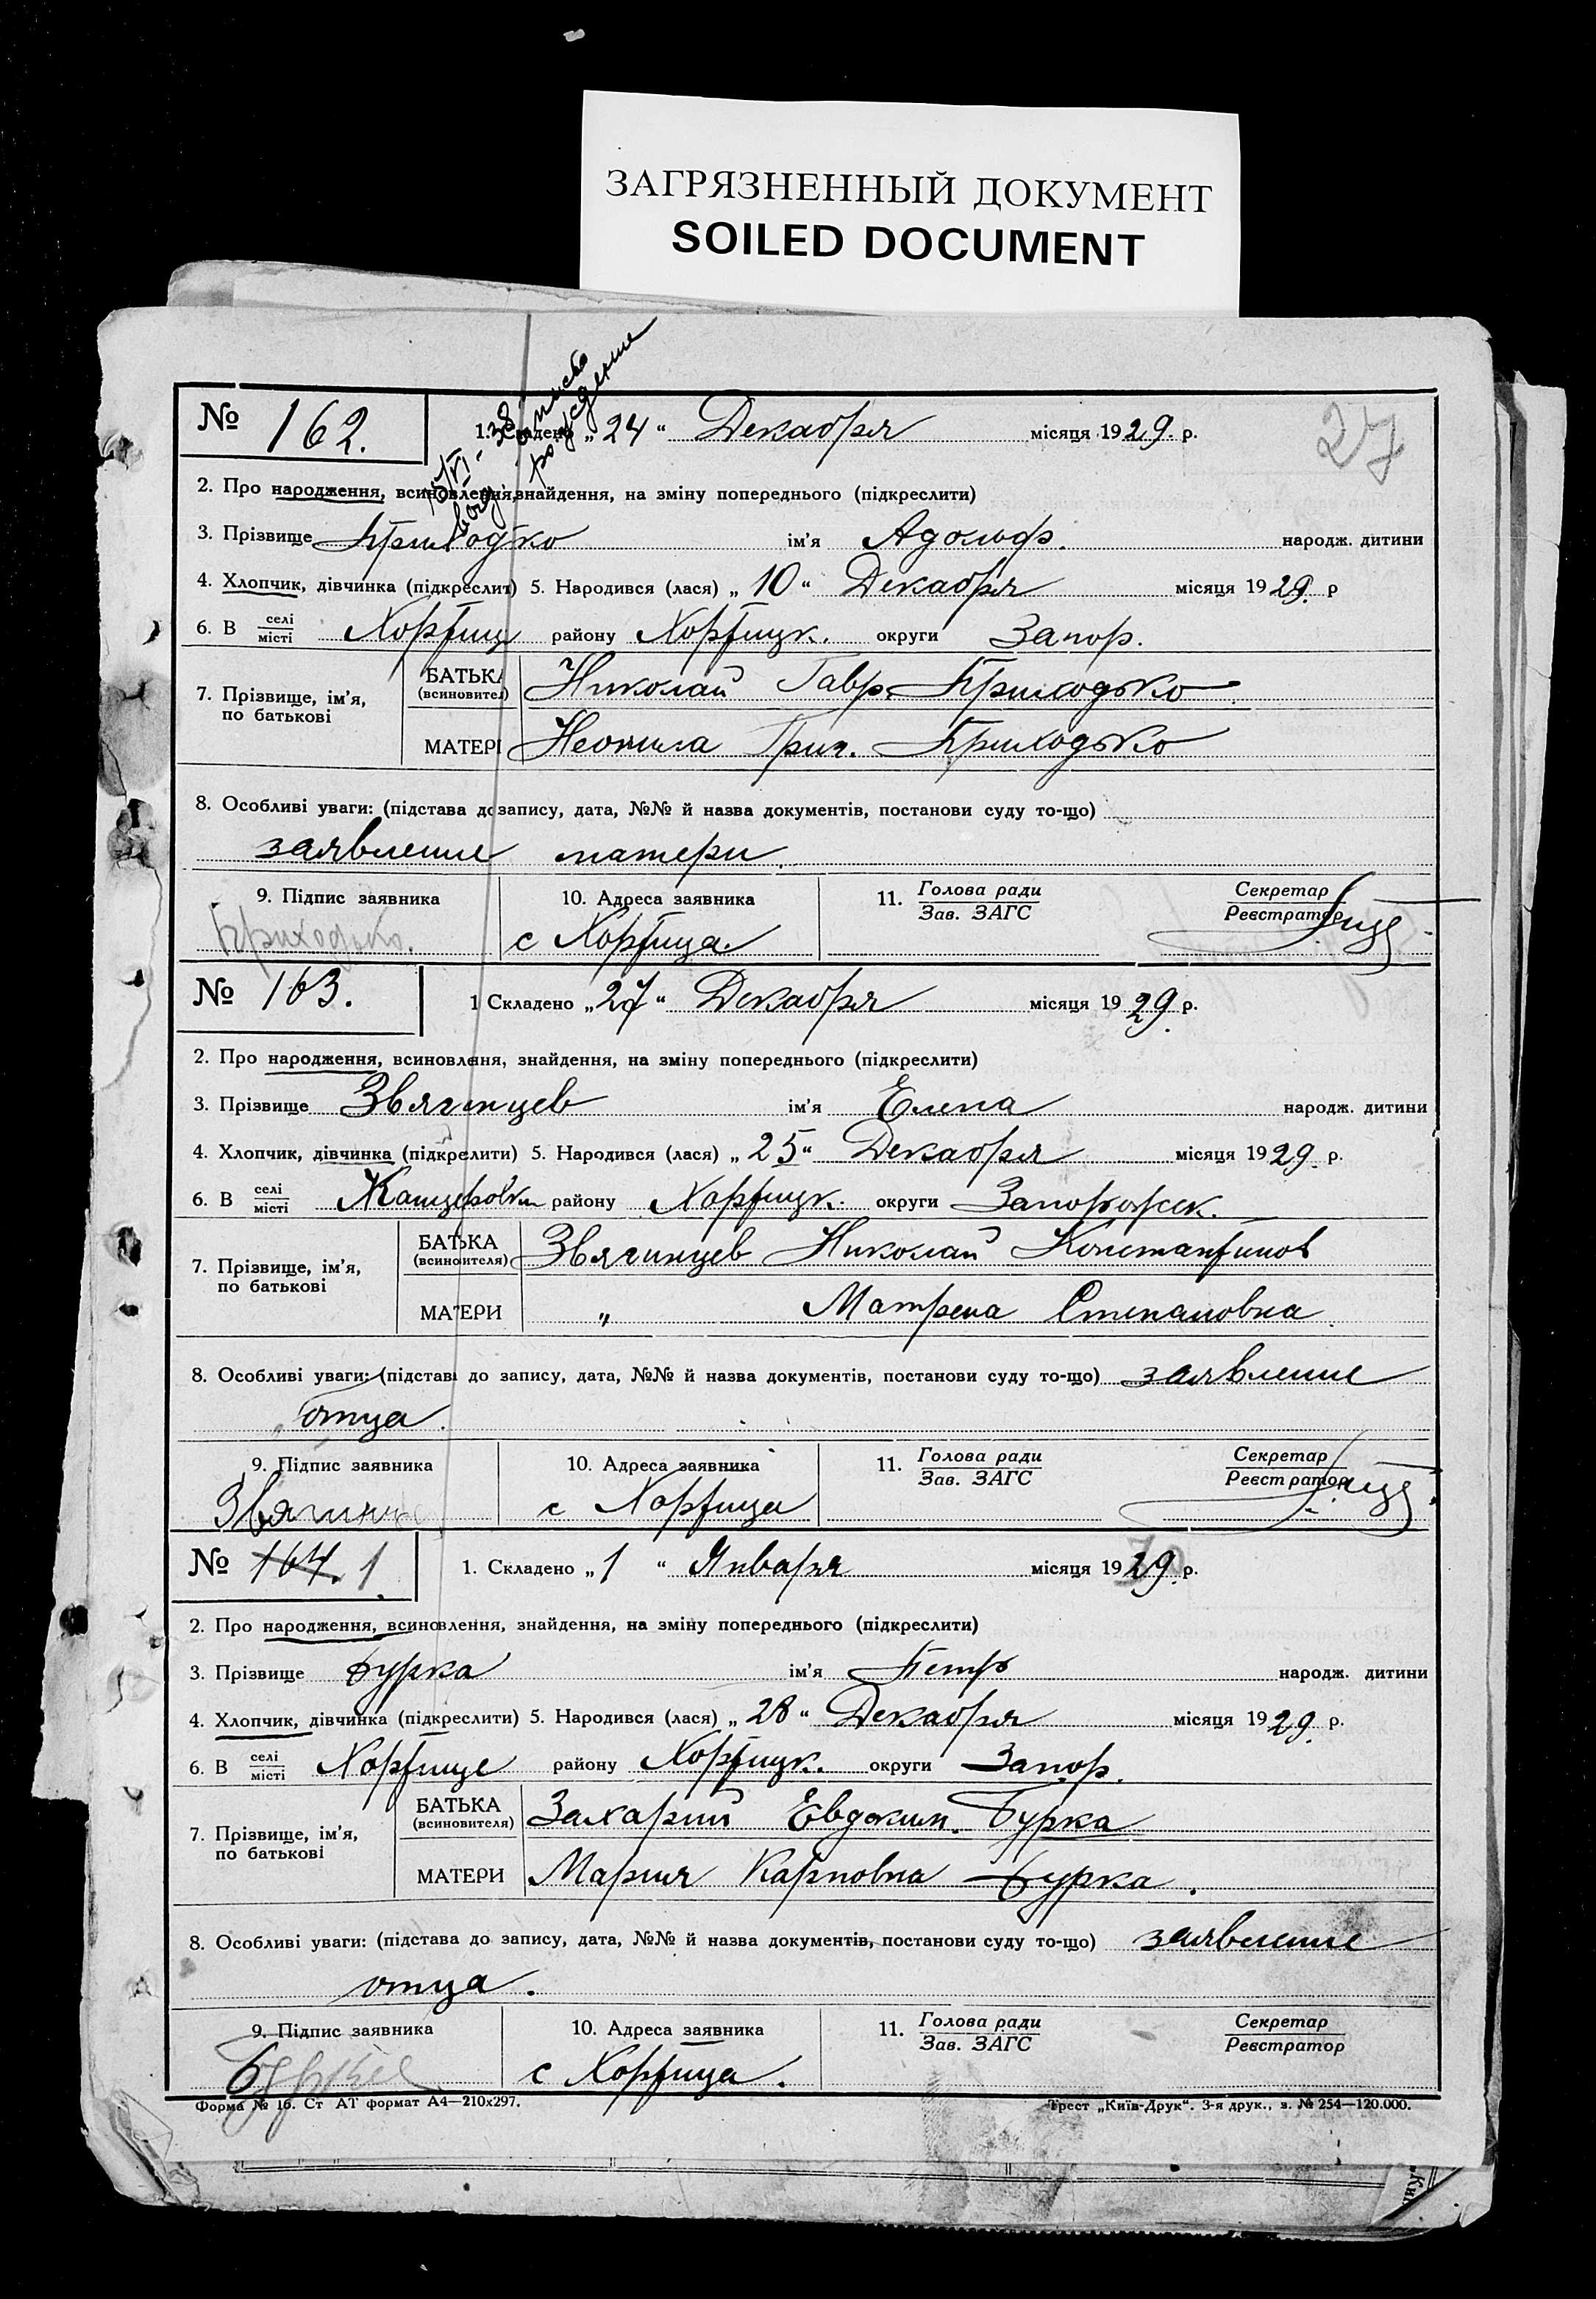 ЗАГРЯЗНЕННЫЙ ДОКУМЕНТ
SOILED DOCUMENT
27
№ 162. 1. Складено „24“ Декабря місяця 1929. р.
рождение
2. Про народження, всиновлення, знайдення, на зміну попереднього (підкреслити)
3. Прізвище Приходько ім'я Адольф. народж. дитини
4. Хлопчик, дівчинка (підкреслит) 5. Народився (лася) „10“ Декабря місяця 1929. р
6. В селі місті Хортиц району Хортицк. округи Запор.
7. Прізвище, ім'я, по батькові
БАТЬКА (всиновител) Николай Гавр. Приходько
МАТЕРІ Неонила Григ. Приходько
8. Особливі уваги: (підстава до запису, дата, №№ й назва документів, постанови суду то-що)
заявление матери.
9. Підпис заявника 10. Адреса заявника 11. Голова ради Зав. ЗАГС Секретар Реєстратор
Приходько. с Хортица.
№ 163. 1 Складено „27“ Декабря місяця 1929. р.
2. Про народження, всиновлення, знайдення, на зміну попереднього (підкреслити)
3. Прізвище Звягинцев ім'я Елена народж. дитини
4. Хлопчик, дівчинка (підкрелити) 5. Народився (лася) „25“ Декабря місяця 1929. р.
6. В селі місті району Хортицк. округи Запорожск.
7. Прізвище, ім'я, по батькові
БАТЬКА (всиновителя) Звягинцев Николай Константинов
МАТЕРИ „ Матрена Степановна
8. Особливі уваги: (підстава до запису, дата, №№ й назва документів, постанови суду то-що) заявление
отца.
9. Підпис заявника 10. Адреса заявника 11. Голова ради Зав. ЗАГС Секретар Реєстратор
Звягинце с Хортица
№ 164. 1. 1. Складено „1“ Января місяця 1929. р.
2. Про народження, всиновлення, знайдення, на зміну попереднього (підкреслити)
3. Прізвище Бурка ім'я Петр народж. дитини
4. Хлопчик, дівчинка (підкреслити) 5. Народився (лася) „28“ Декабря місяця 1929. р.
6. В селі місті Хортице району Хортицк. округи Запор.
7. Прізвище, ім'я, по батькові
БАТЬКА (всиновителя) Захарий Евдоким. Бурка
МАТЕРИ Мария Карповна Бурка.
8. Особливі уваги: (підстава до запису, дата, №№ й назва документів, постанови суду то-що) заявление
отца.
9. Підпис заявника 10. Адреса заявника 11. Голова ради Зав. ЗАГС Секретар Реєстратор
Бурка с Хортица.
Форма № 16. Ст АТ формат А4—210х297. Трест „Київ-Друк“. 3-я друк., з. № 254—120.000.